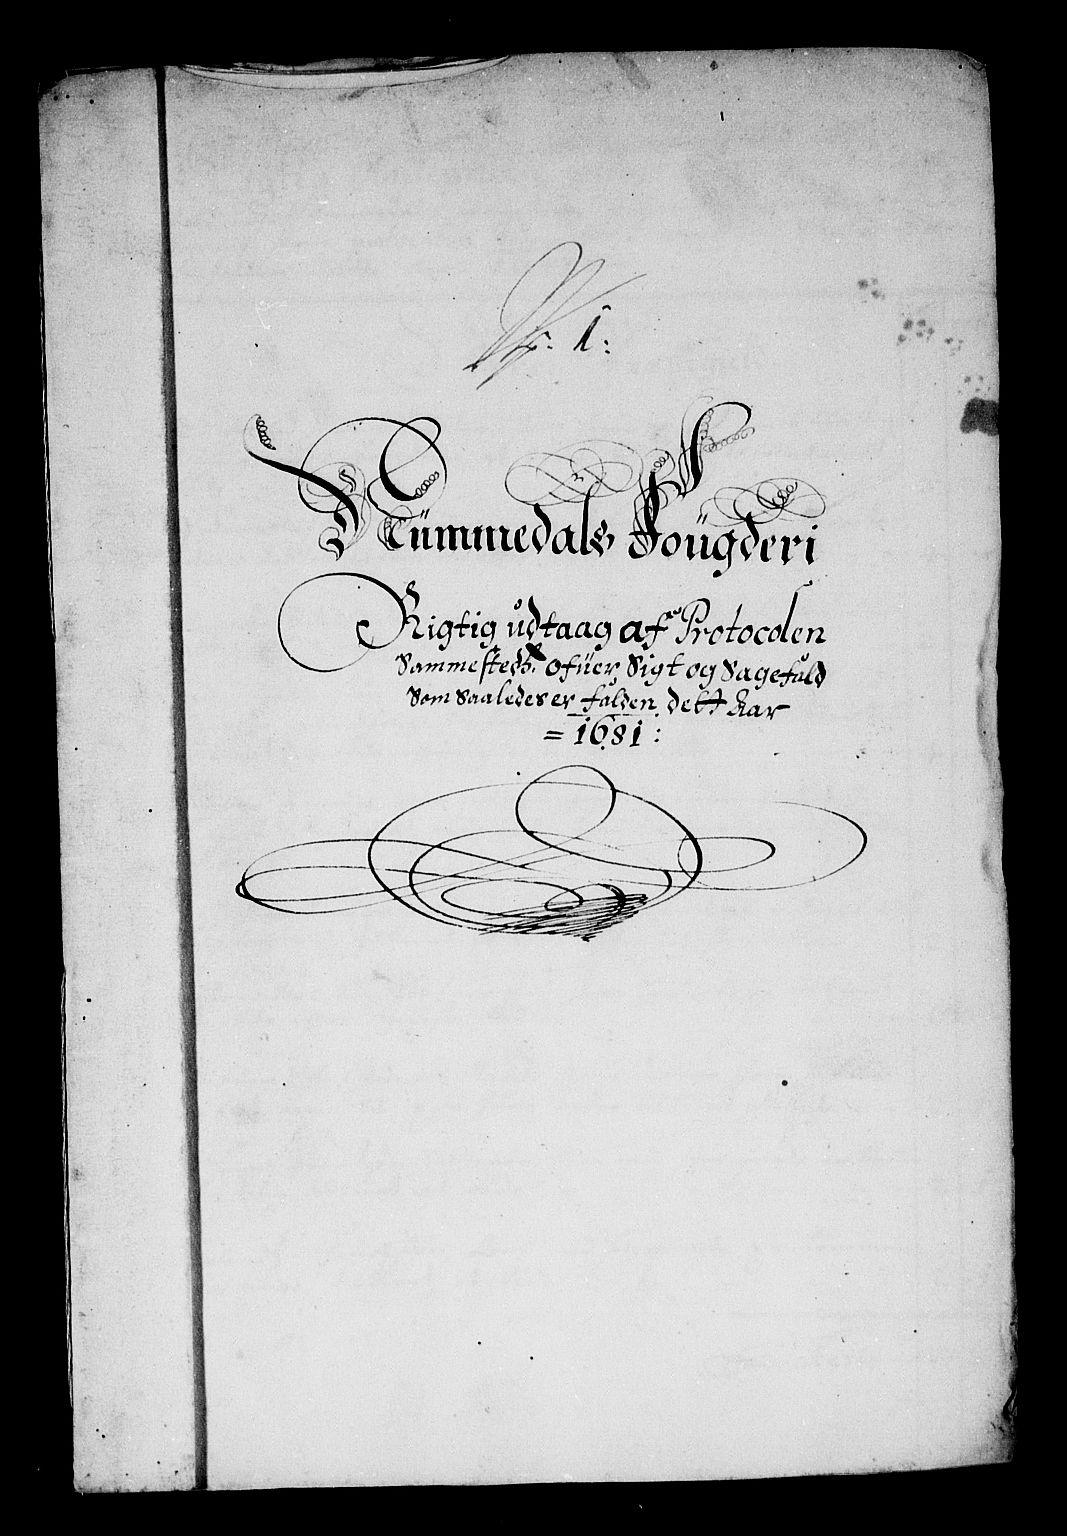 Nr. 1:
Nümmedals Fougderi
Rigtig udtaag af Protocolen
Sammesteds. ofüer Sigt og Sagefald
Som Saaledes er falden dett Aar
= 1681: